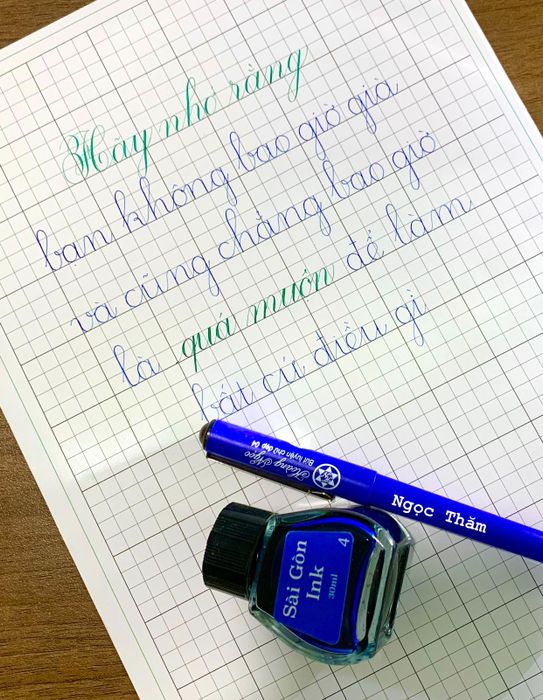 Hãy nhớ rằng
bạn không bao giờ già
và cũng chẳng bao giờ
là quá muộn để làm
bất cứ điều gì
Hoàng Ngọc
Bút luyện chữ đẹp 04
Ngọc Thăm
Sài Gòn
Ink
30ml
4